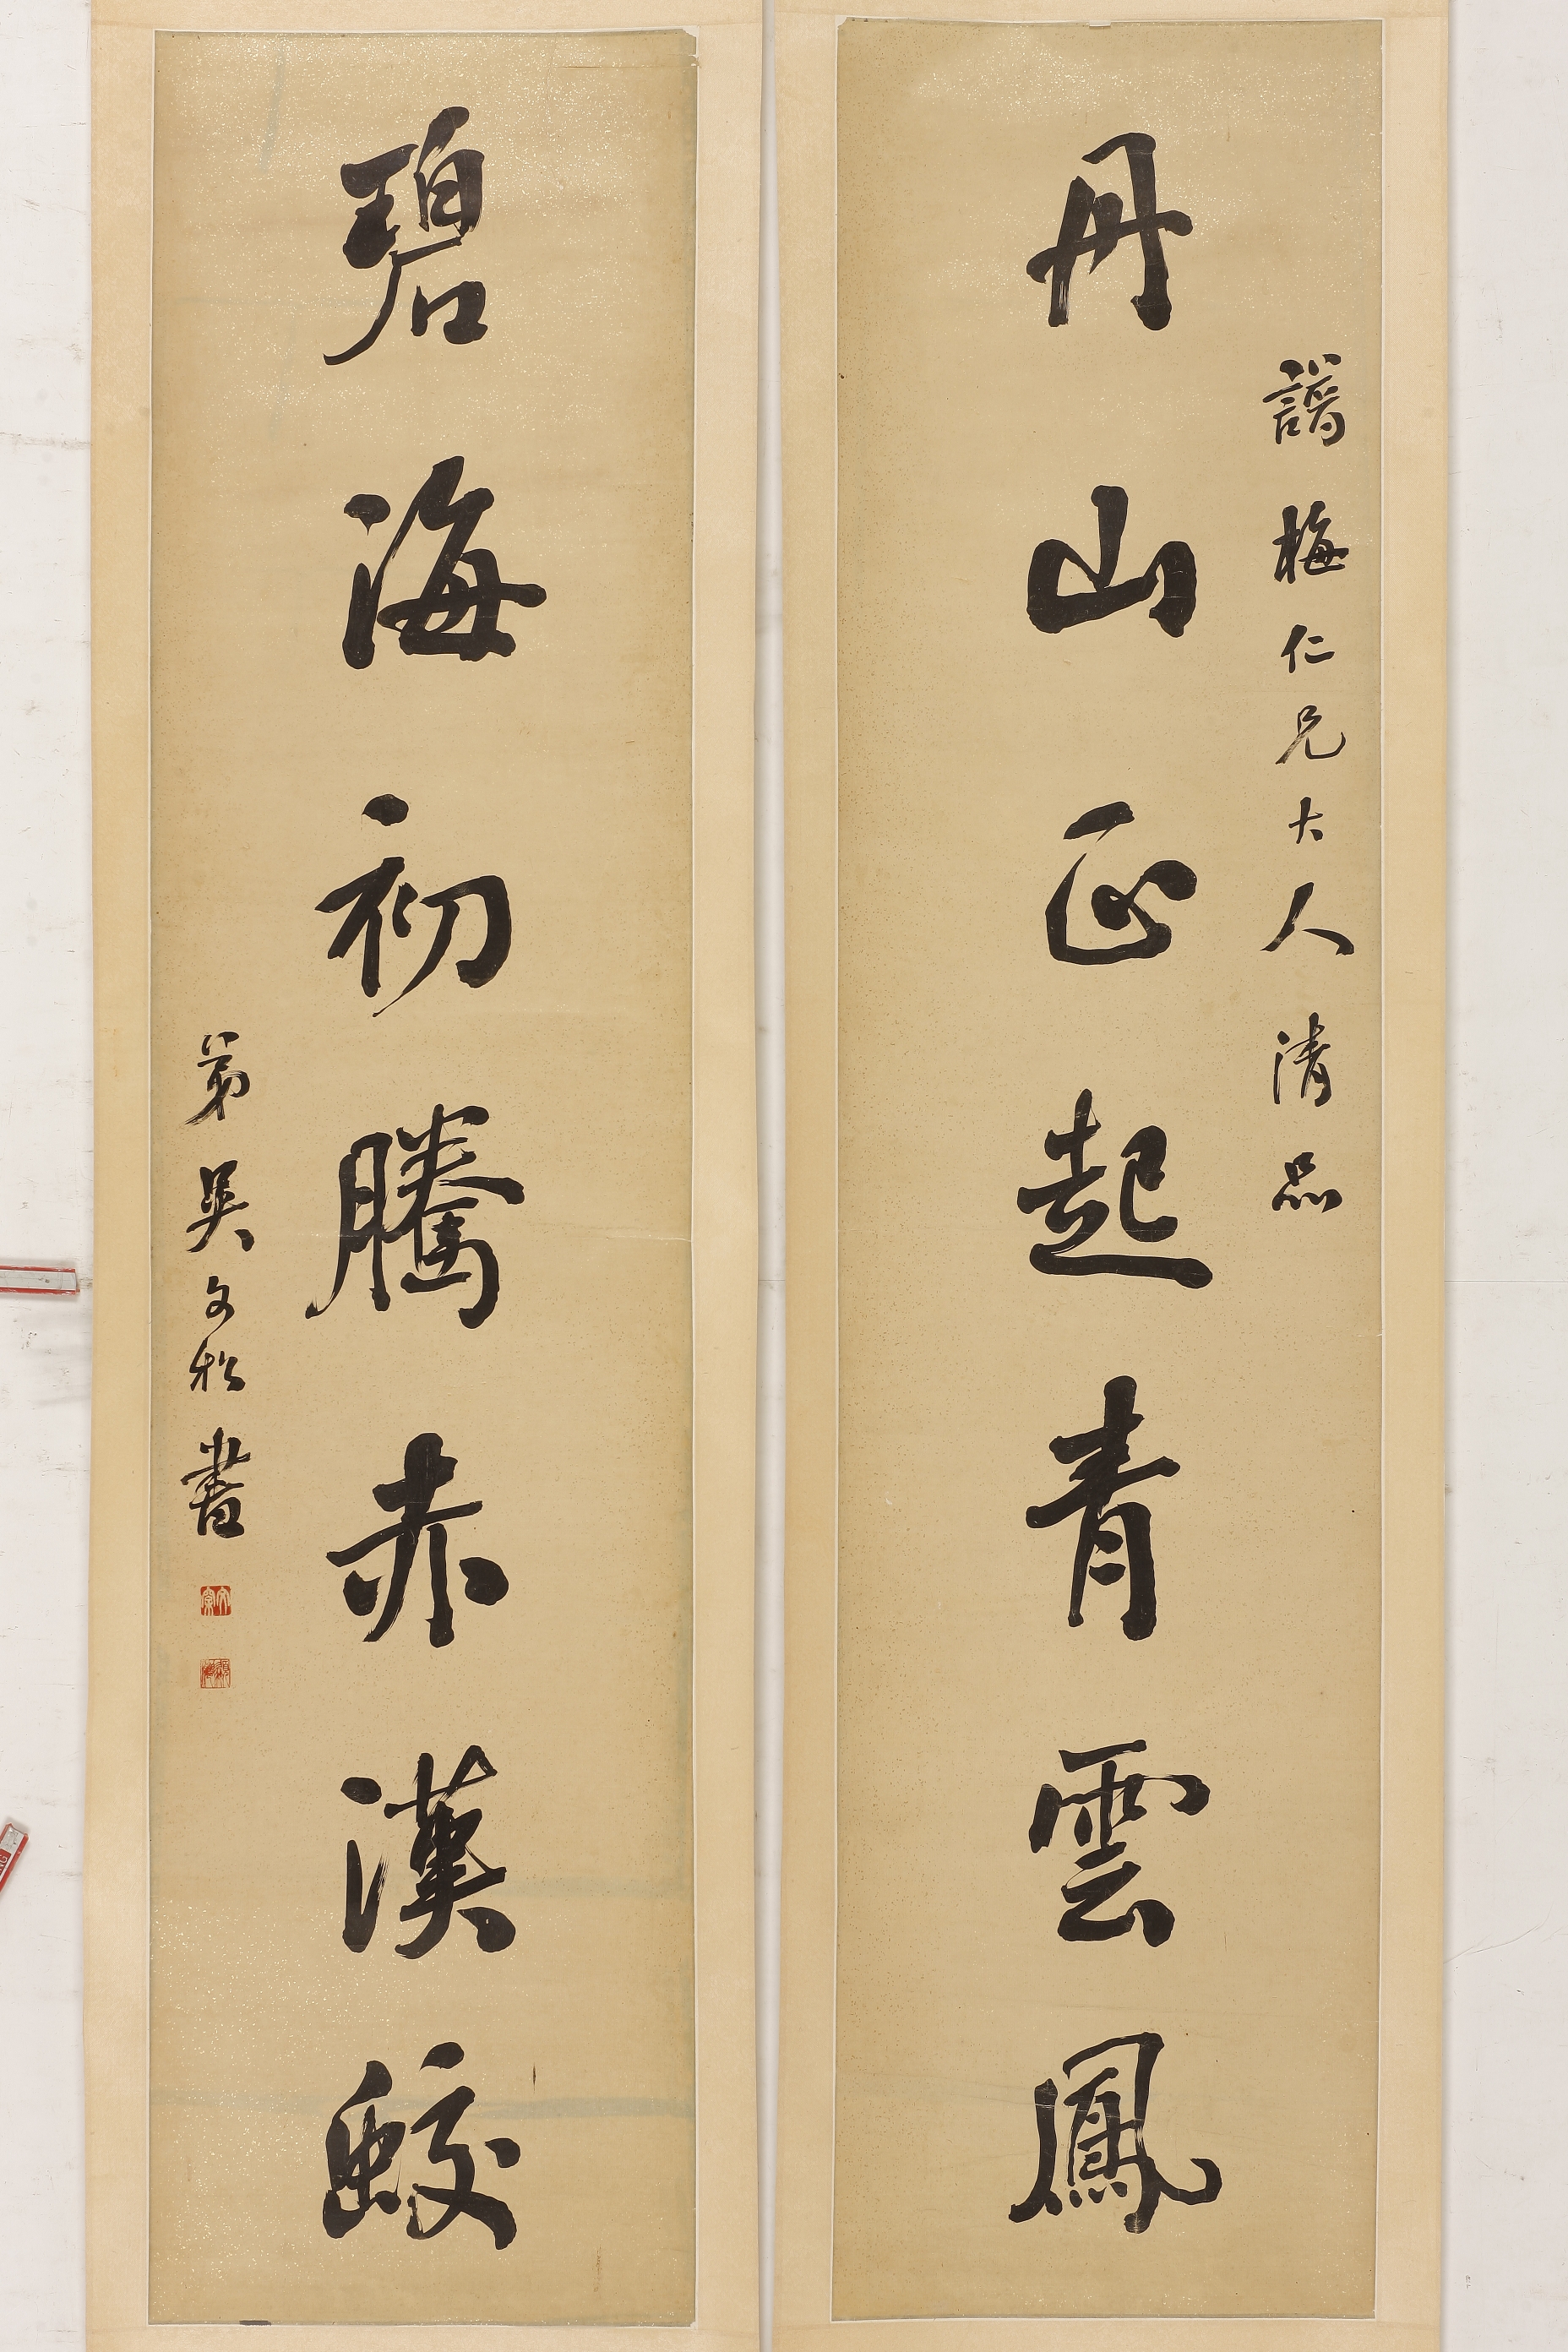 丹山正起青雲鳳
譪梅仁兄大人清品
碧海初騰赤漢蛟
弟吳文松書